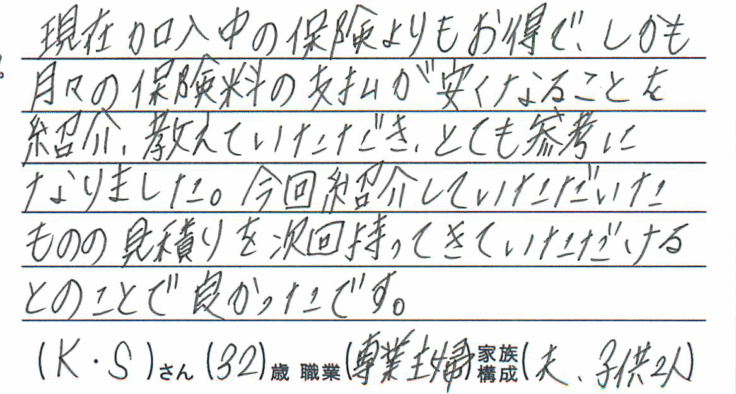 現在加入中の保険よりもお得で、しかも
月々の保険料の支払が安くなることを
紹介、教えていただき、とても参考に
なりました。今回紹介していただいた
ものの見積りを次回持ってきていただける
とのことで良かったです。
(K・S)さん(32)歳 職業(専業主婦)家族構成(夫、子供2人)